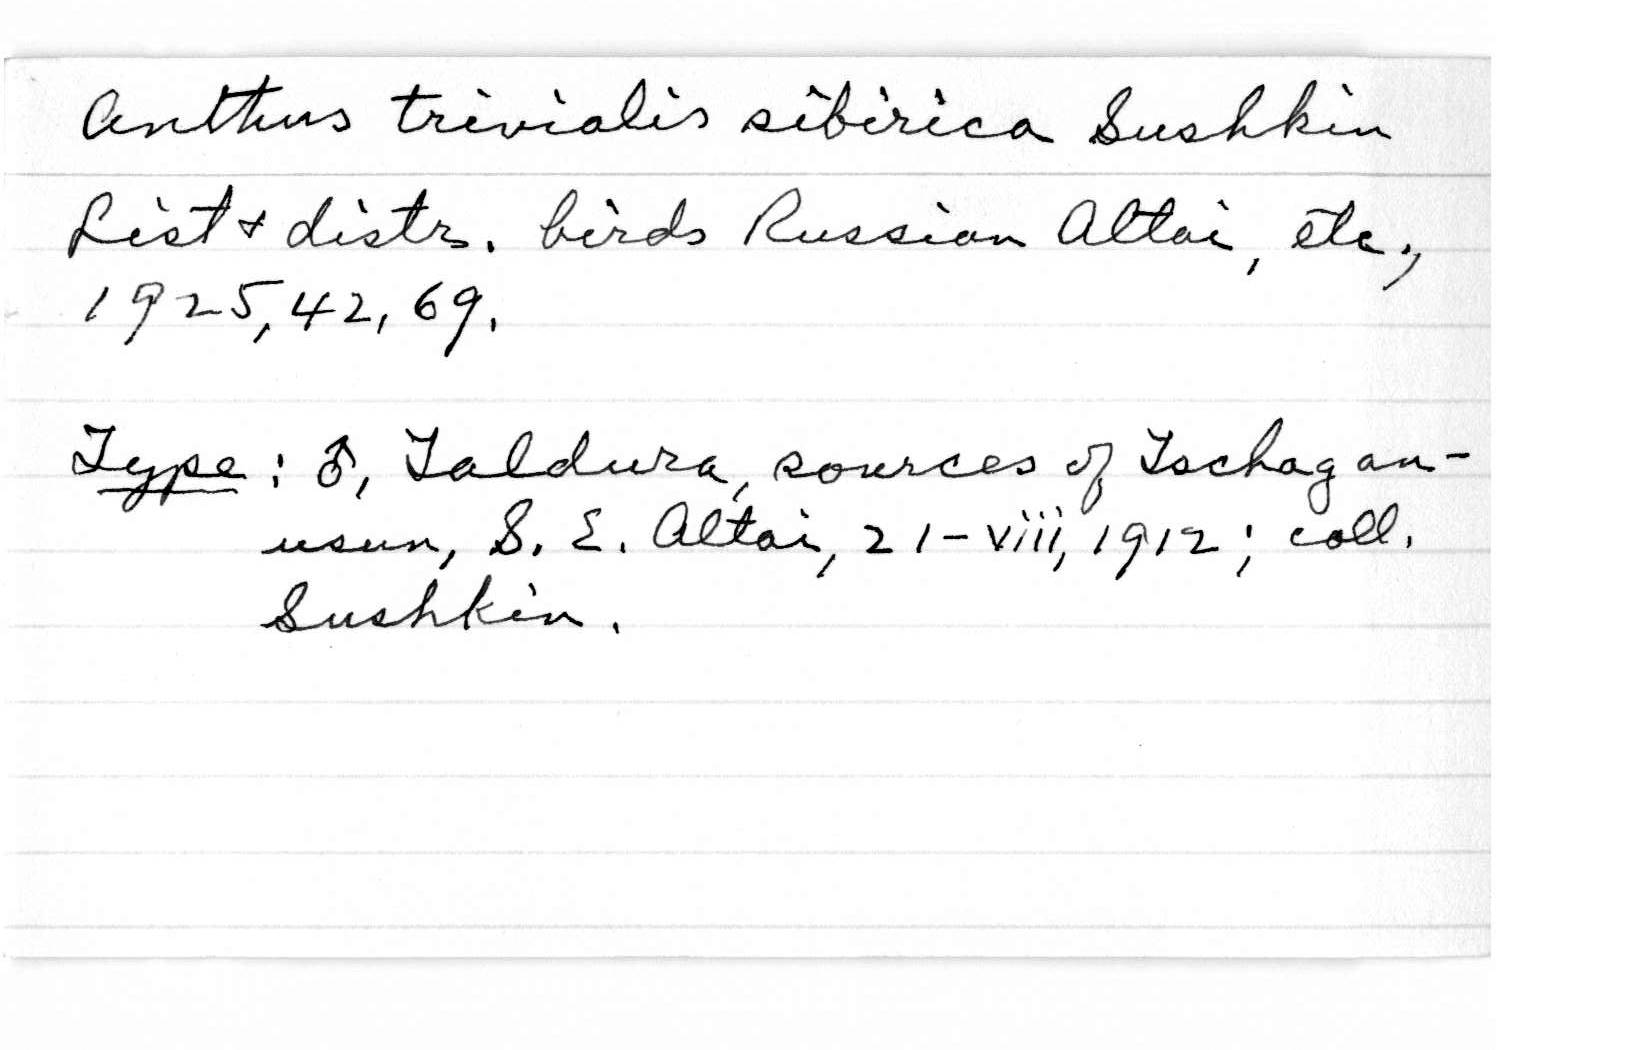 Anthus trivialis sibirica Sushkin
List & distr. birds Russian Altai, etc.,
1925, 42, 69.
Type: ♂, Taldura, sources of Tschagan-
usun, S. E. Altai, 21-viii, 1912; coll.
Sushkin.